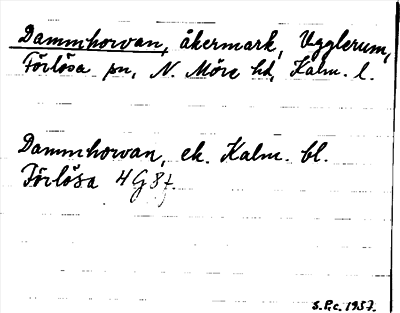 Dammhorvan, åkermark, Ugglerum,
Förlösa sn, N. Möre hd, Kalm. l.
Dammhorvan, ek. Kalm. bl.
Förlösa 4G8f.
S.P.c. 1957.